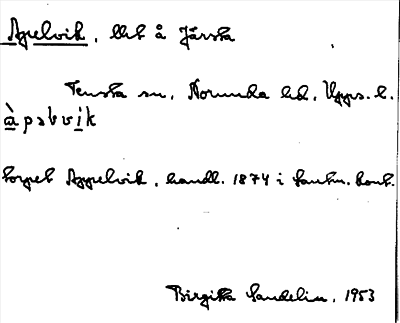 Appelvik, llt å Järsta
Tensta sn, Norunda hd, Upps. l.
à p ə l v i k
torpet Appelvik, handl. 1874 i Lantm. kont.
Birgitta Sandelin, 1953